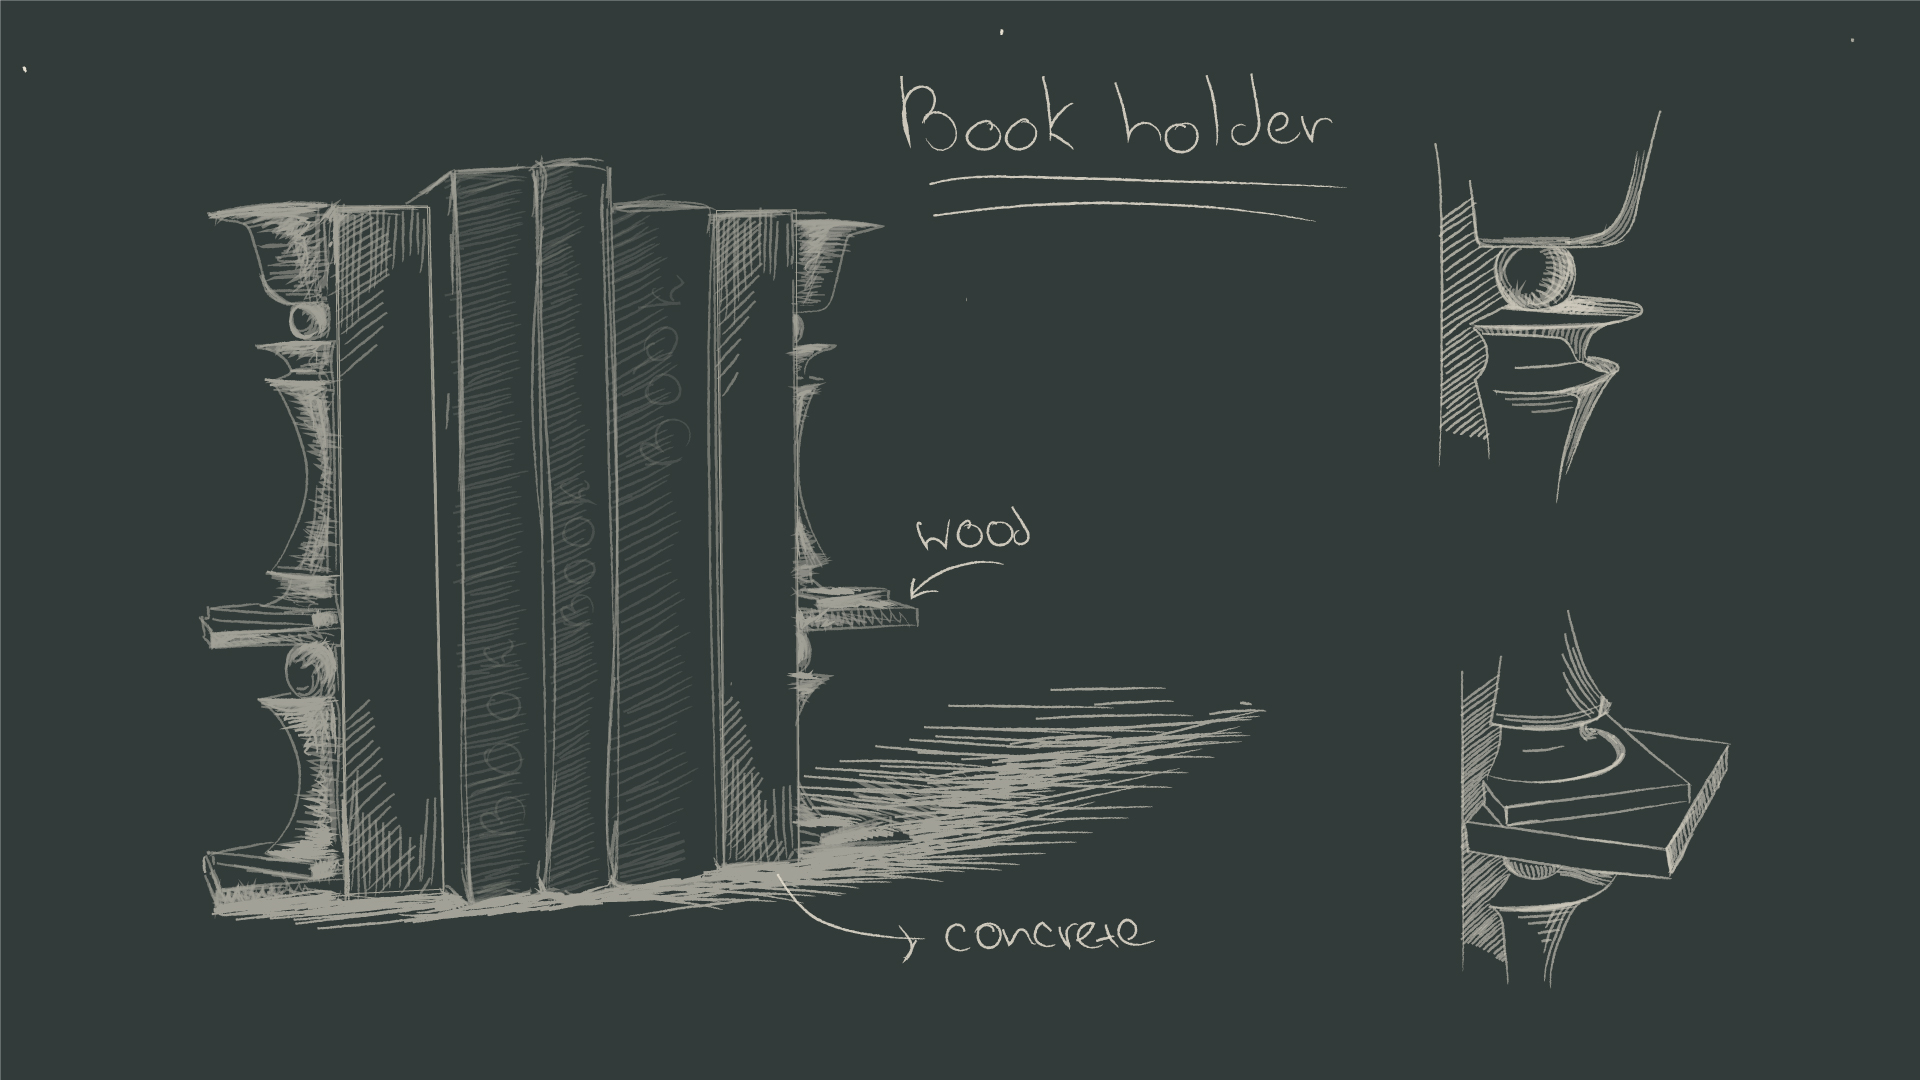 Book holder
Book
Book
Book
wood
concrete